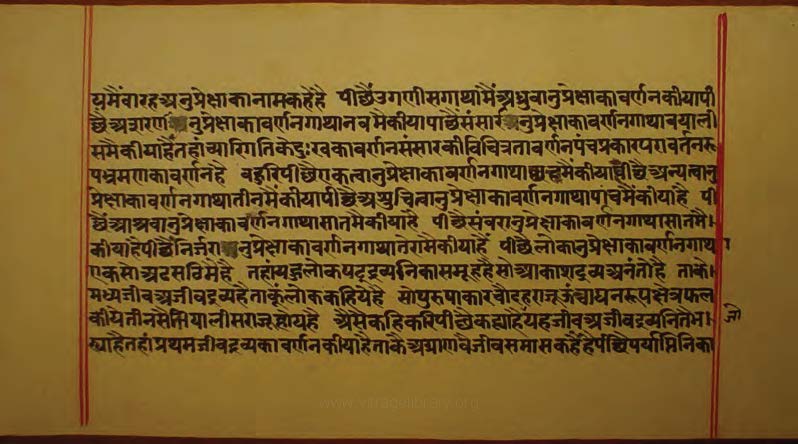 यमैंबारहअनुप्रेक्षाकानामकहेहै पीछैंउगणीसगाथामैंअध्रुवानुप्रेक्षाकावर्णनकीयापी
छैअशरणअनुप्रेक्षाकावर्णनगाथानवमैकीयापाछैसंसारअनुप्रेक्षाकावर्णनगाथाबयाली
समैकीयाहैंतहांच्यारिगतिकेदुःखकावर्णनसंसारकीविचित्रतावर्णनपंचप्रकारपरावर्तनरू
पभ्रमणकावर्णनहै बहुरिपीछैएकत्वानुप्रेक्षाकावर्णनगाथा मैंकीयापीछैअन्यत्वानु
प्रेक्षाकावर्णनगाथातीनमैंकीयापीछैअशुचित्वानुप्रेक्षाकावर्णनगाथापांचमैंकीयाहै पी
छैंआश्रवानुप्रेक्षाकावर्णनगाथासातमैकीयाहै पीछैसंवरानुप्रेक्षाकावर्णनगाथासातमै।
कीयाहैपीछैनिर्जराअनुप्रेक्षाकावर्णनगाथातेरामैकीयाहै पीछैलोकानुप्रेक्षाकावर्णनगाथा
एकसोअठसठिमैहै तहांयहलोकषट्द्रव्यनिकासमूहहैसोआकाशद्रव्यअनंतोहै ताके।
मध्यजीवअजीवद्रव्यहैताकूंलोककहियेहै सोपुरुषाकारचौदहराजूऊंचाघनरूपक्षेत्रफल
कीयेतीनसैतियालीसराजूहोयहै अैसेकहिकरिपीछैकह्याहैयहजीवअजीवद्रव्यनितैभ। जो
र्‍याहैतहांप्रथमजीवद्रव्यकावर्णनकीयाहैताकैअठ्याणवैजीवसमासकहैहैपीछैपर्याप्तिनिका
www.vitragelibrary.org